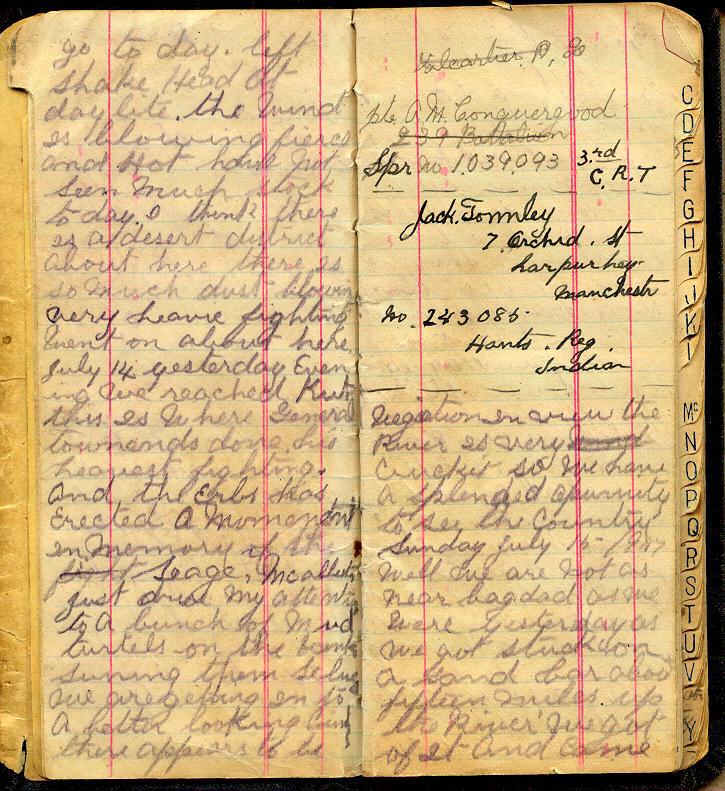 go to day. left
Shake Head At
daylite. the Wind
is blowing fierce
and Hot have not
seen Much stock
to day. I think there
is a desert district
about here there is
so much dust blowing
very heavie fighting
went on about here.
July 14 yesterday Even
ing We reached Kut
this is Where General
townsends done his
heavest fighting.
And the Erbs Has
Erected A Moment
in Memory of the
Seage, Mcallest
just drew My attent
to A bunch of Mud
turtels on the bank
suning them Selve
we are getting in to
A better looking
there appears to be
Valcartier. P, Q
pte A. M. Conquergood
239 Battalion
Spr No 1039093 3rd
C. R. T
Jack. Tommley
7. Orchrd. St
harpurhey
Manchestr
No. 243085.
Hants. Reg.
Indian
Vegetion in view the
River is very
Crucket so We have
A splended opurnity
to see the Country
Sunday July 15/1917
Well We are not as
near bagdad as we
Were yesterday as
We got stuck on
a Sand bar about
fifteen Miles. up
the River We got
of it And Came
C
D
E
F
G
H
I
J
K
L
Mc
N
O
P
Q
R
S
T
U
V
Y